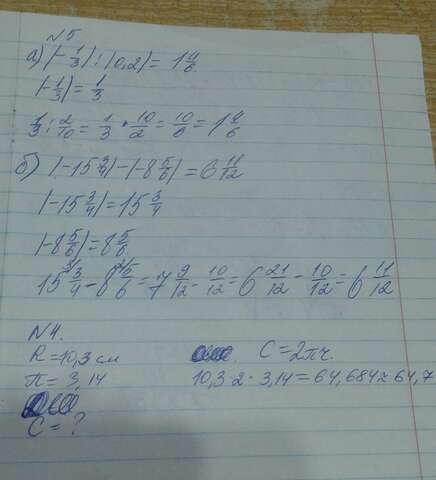 №5
а) |-1/3| : |0,2| = 1 4/6
|-1/3| = 1/3
1/3 : 2/10 = 1/3 * 10/2 = 10/6 = 1 4/6
б) |-15 3/4| - |-8 5/6| = 6 11/12
|-15 3/4| = 15 3/4
|-8 5/6| = 8 5/6
15 3/4 - 8 5/6 = 7 9/12 - 10/12 = 6 21/12 - 10/12 = 6 11/12
№4.
R = 10,3 см
C = 2πч.
π = 3,14
10,3 · 2 · 3,14 = 64,684 ≈ 64,7
C = ?